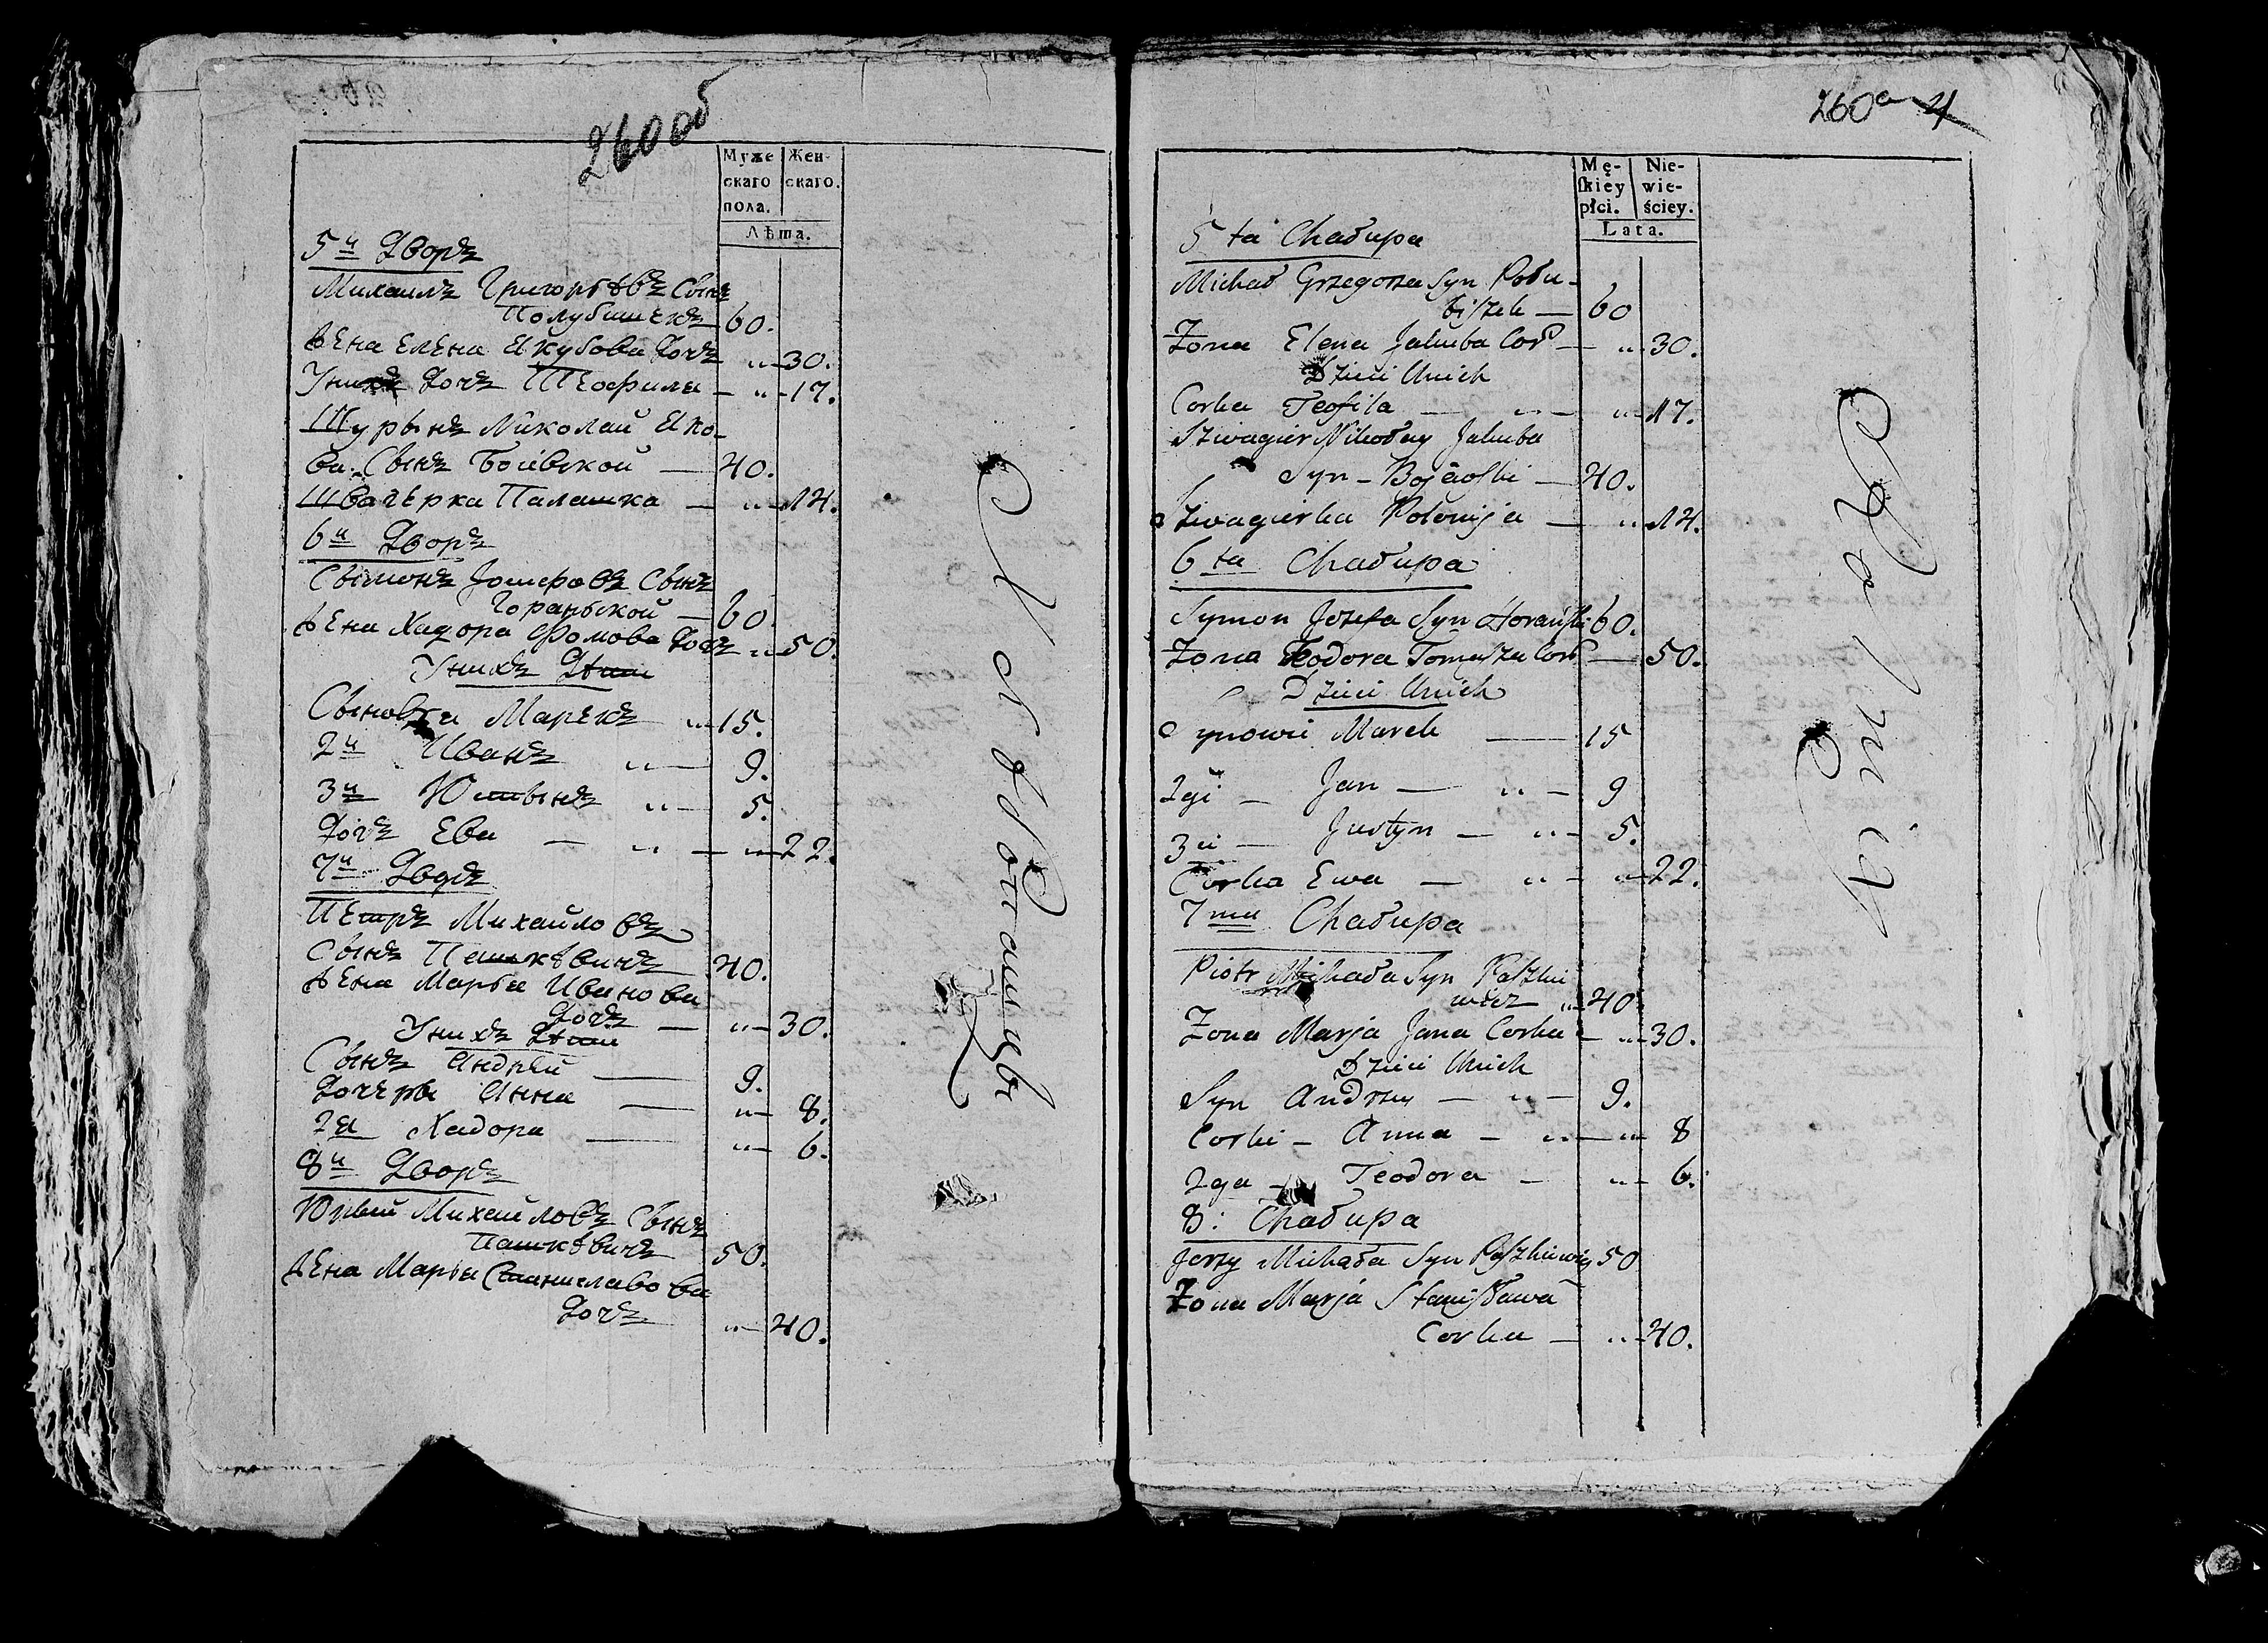 260об
Муже
скаго
пола.
Жен-
скаго.
Лѣта.
5й Дворъ
Михаилъ Григорьевъ Сынъ
Полубишекъ 60.
Жена Елена Якубова Дочь " 30.
Унихъ Дочь Теофила — " 17.
Шурынъ Миколай Яко-
ва Сынъ Боевской — 40.
Швагерка Палашка — " 14.
6й Дворъ
Сымонъ Іозефовъ Сынъ
Гораньской — 60.
Жена Хадора Фомова Дочь " 50.
Унихъ Дѣти
Сыновья Марекъ " 15.
2й Иванъ " — 9.
3й Юстынъ " — 5.
Дочь Ева — " — " 22.
7й Дворъ
Петръ Михайловъ
Сынъ Пашкѣвичъ 40.
Жена Марья Иванова
Дочь — " 30.
Унихъ Дѣти
Сынъ Андрей — 9.
Дочеры Анна — " 8.
2я Хадора — " 6.
8й Дворъ
Юрый Михайловъ Сынъ
Пашкѣвичъ 50.
Жена Марья Станиславова
Дочь " 40.
260a 4
Mę-
skiey
płci.
Nie-
wie-
ściey.
Lata.
5ta Chałupa
Michał Grzegorza Syn Połu-
biszek — 60
Żona Elena Jakuba Cor — " 30.
Dzieci Unich
Corka Teofila — " — " 17.
Szwagier Mikołay Jakuba
Syn — Bojewski — 40.
Szwagierka Połonija — " 14.
6ta Chałupa
Symon Jozefa Syn Horański 60.
Żona Teodora Tomasza Cor — 50.
Dzieci Unich
Synowie Marek — 15
2gi — Jan — " — 9
3ci — Justyn — " — 5.
Corka Ewa — " — " 22.
7ma Chałupa
Piotr Michała Syn Paszkie
wicz " 40.
Żona Marja Jana Corka — " 30.
Dzieci Unich
Syn Andrzey — " — 9.
Corki — Anna — " — " 8
2ga — Teodora — " — 6.
8: Chałupa
Jerzy Michała Syn Paszkiewicz 50
Żona Marja Stanisława
Corka — " 40.